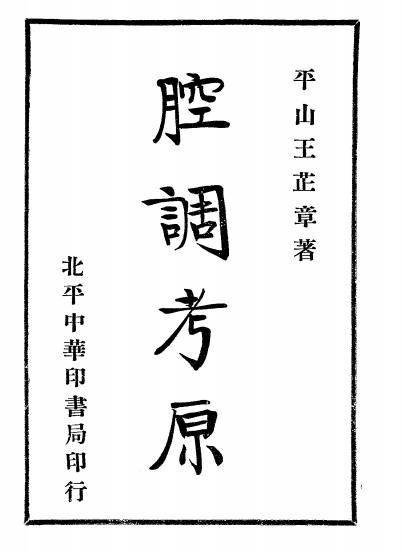 平山王芷章著
腔調考原
北平中華印書局印行